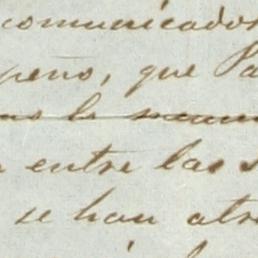 comunicados
peño, que Pa
entre las s
se han atre